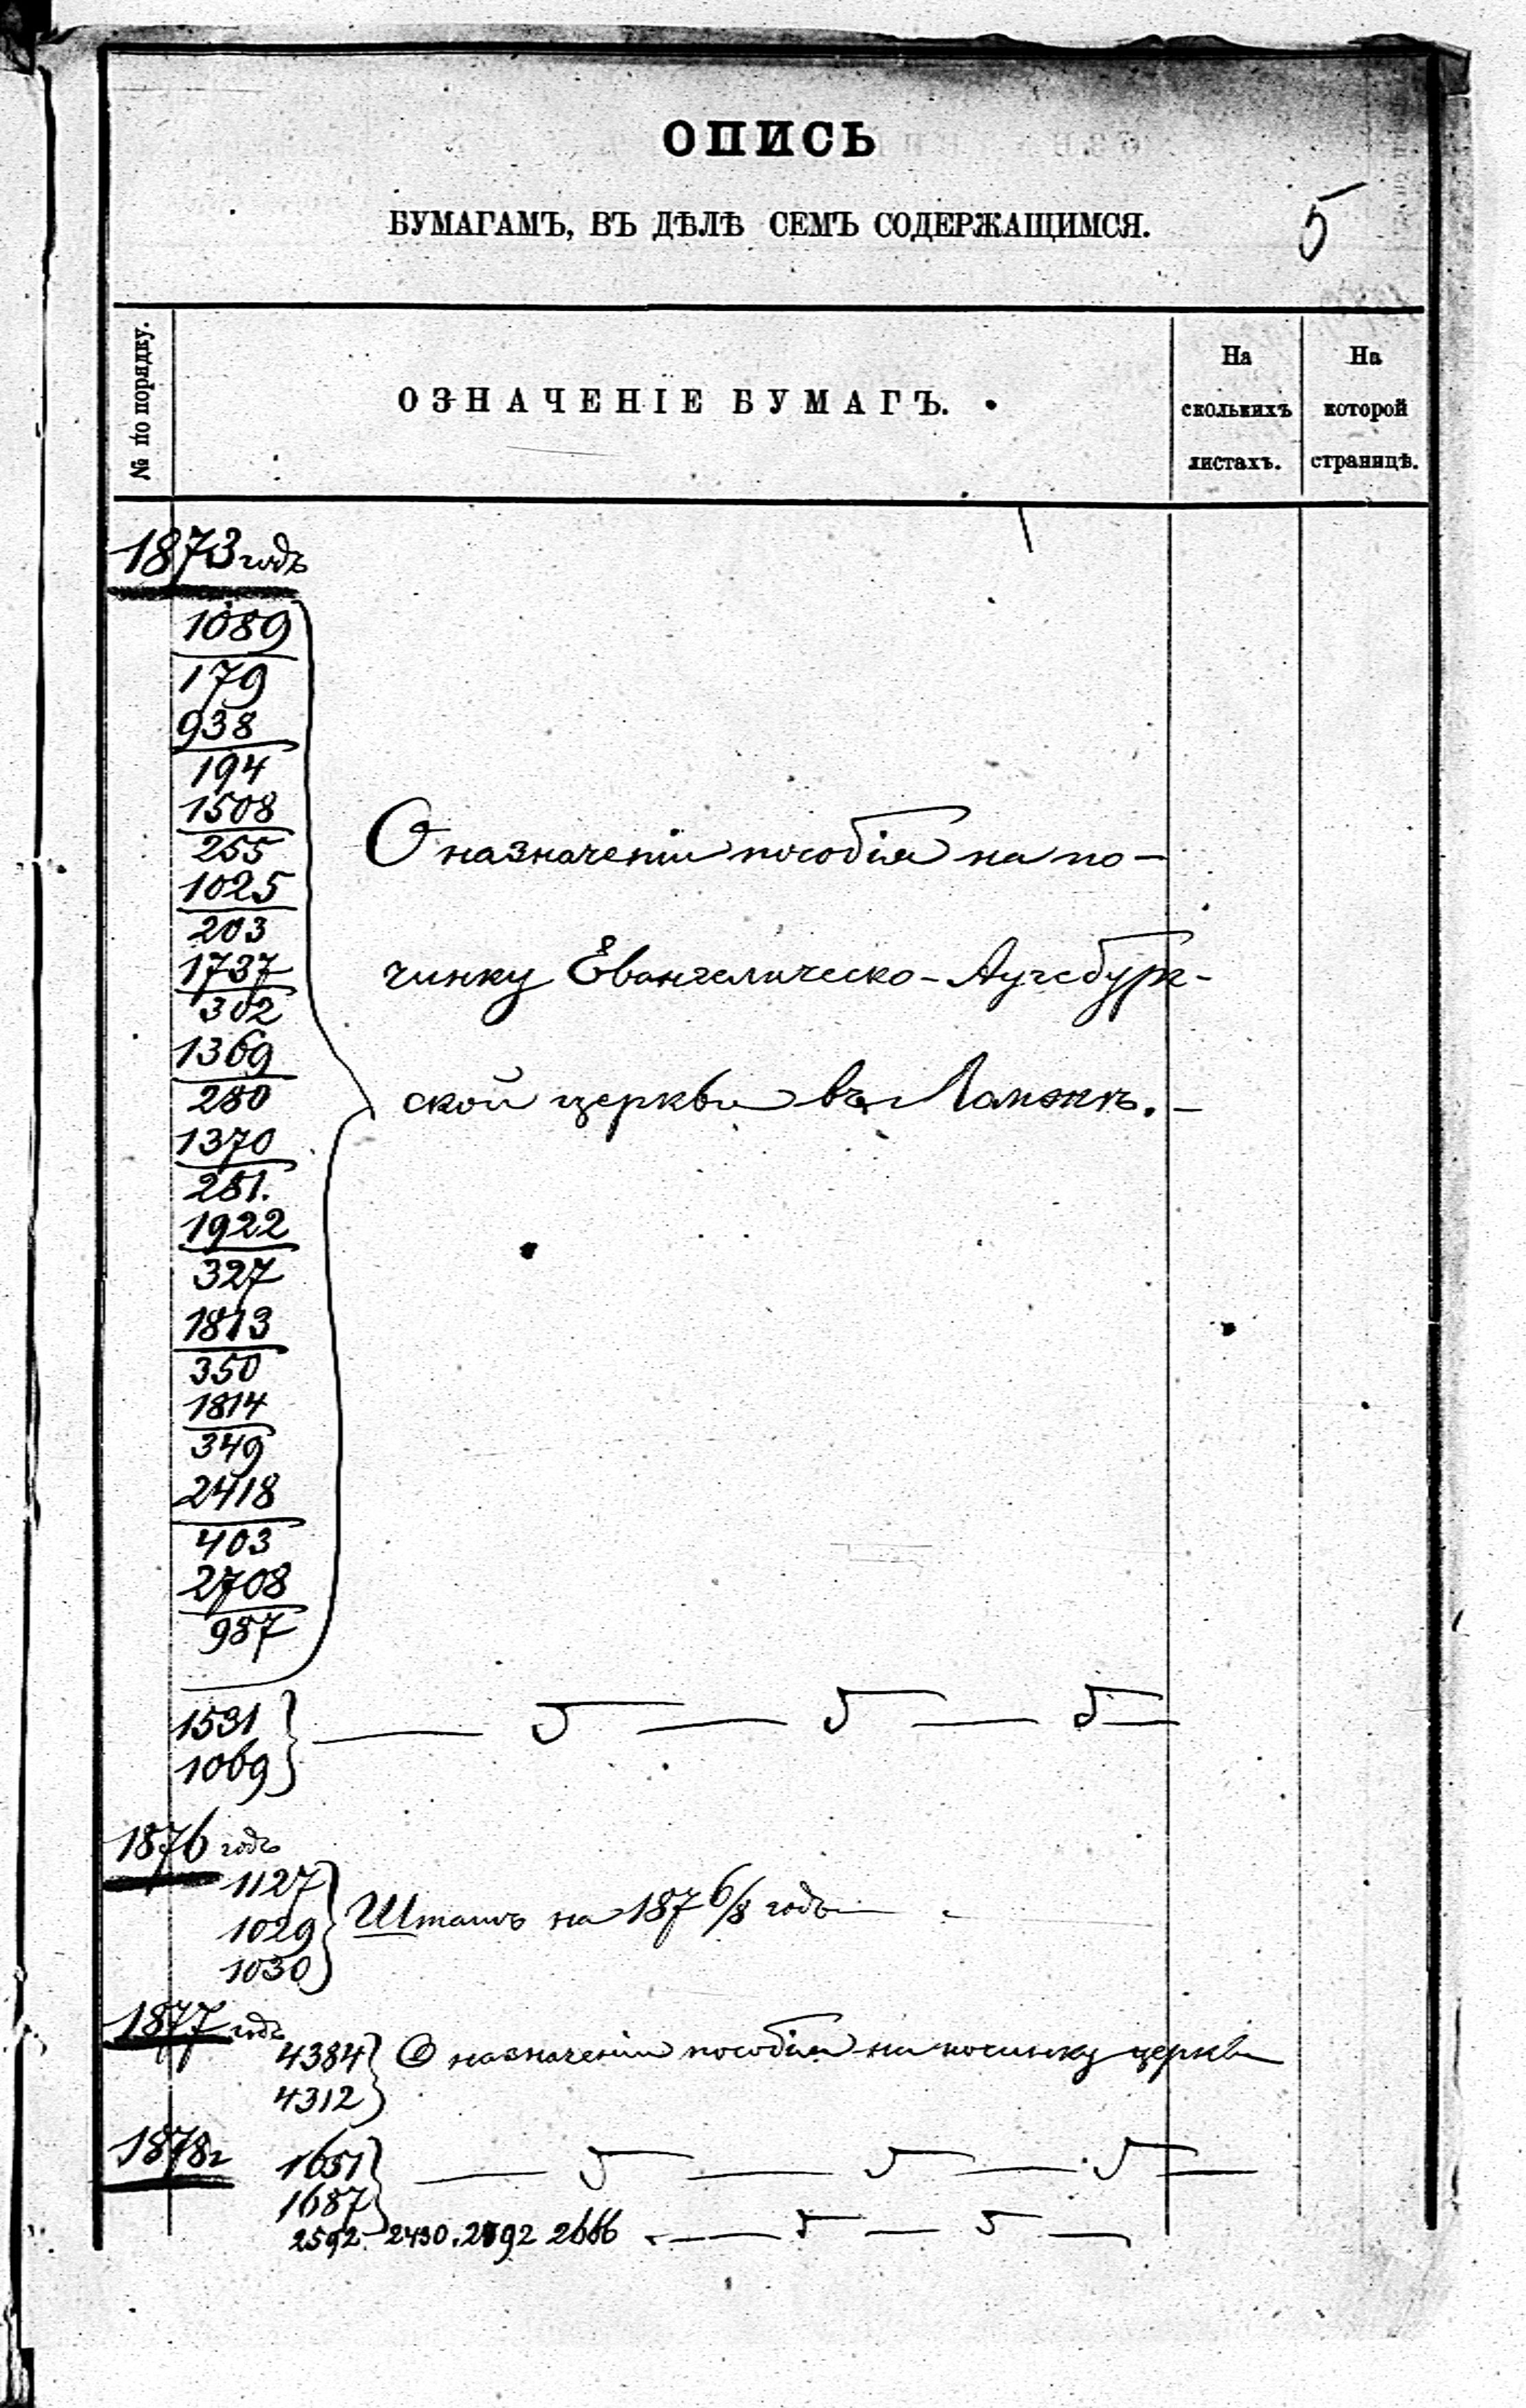 ОПИСЬ
БУМАГАМЪ, ВЪ ДѢЛѢ СЕМЪ СОДЕРЖАЩИМСЯ.
5
№ по порядку.
ОЗНАЧЕНІЕ БУМАГЪ.
На сколькихъ листахъ.
На которой страницѣ.
1873 годъ
1089
179
938
194
1508
255
1025
203
1737
302
1369
280
1370
281.
1922
327
1813
350
1814
349
2418
403
2708
987
О назначеніи пособія на по-
чинку Евангелическо-Аугсбург-
ской церкви въ Ломжѣ.
1531
1069
1876 годъ
1127
1029
1030
Штатъ на 1876/8 годы
1877 годъ
4384
4312
О назначеніи пособія на починку церкви
1878г
1651
1687
2592 2430. 2666